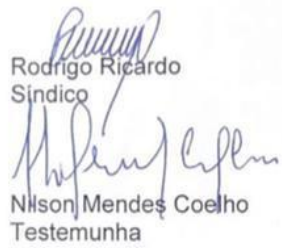 Rodrigo Ricardo
Síndico
Nilson Mendes Coelho
Testemunha